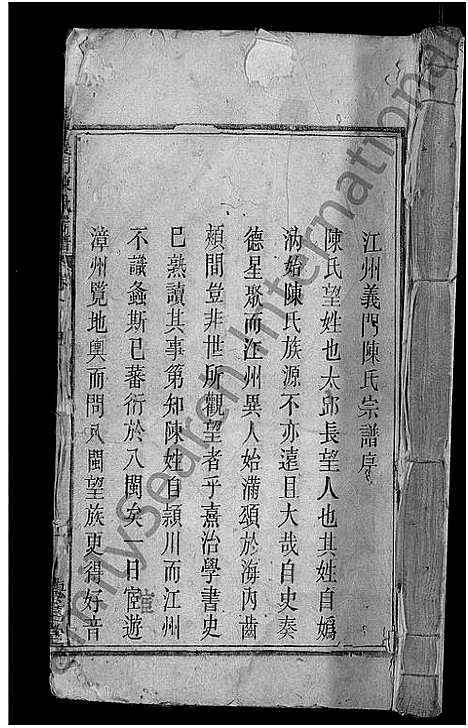 江州義門陳氏宗譜序
陳氏望姓也太邱長望人也其姓自嬀
汭始陳氏族源不亦遠且大哉自史奏
德星聚而江州異人始滿頌於海內齒
頰間豈非世所觀望者乎熹治學書史
已熟讀其事第知陳姓自頴川而江州
不識螽斯已蕃衍於八閩矣一日宦遊
漳州覽地輿而問八閩望族更得好音
FamilySearch International